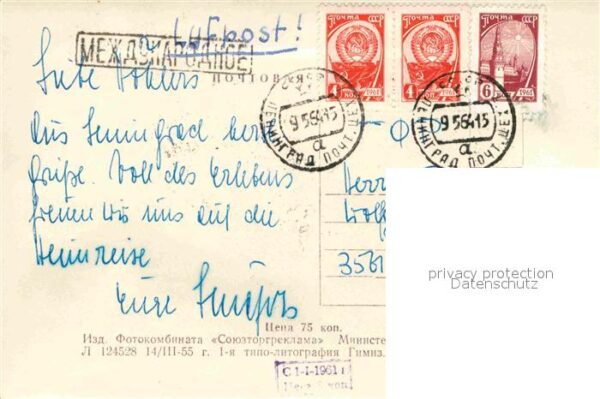 Luftpost!
МЕЖДУНАРОДНОЕ
ПОЧТА СССР
4 КОП 1961
ПОЧТА СССР
4 КОП 1961
ПОЧТА СССР
6 1961
ПОЧТОВАЯ
Liebe
Aus Leningrad herzl.
Grüße. Voll des Erlebens
freuen wir uns auf die
Heimreise
Eure
ЛЕНИНГРАД ПОЧТ.
9 5 64 15
а
ЛЕНИНГРАД ПОЧТ.
9 5 64 15
а
Herr
3561
privacy protection
Datenschutz
Цена 75 коп.
Изд. Фотокомбината «Союзторгреклама» Министе
Л 124528 14/III-55 г. I-я типо-литография Гимиз.
С 1-I-1961 г
Цена коп.